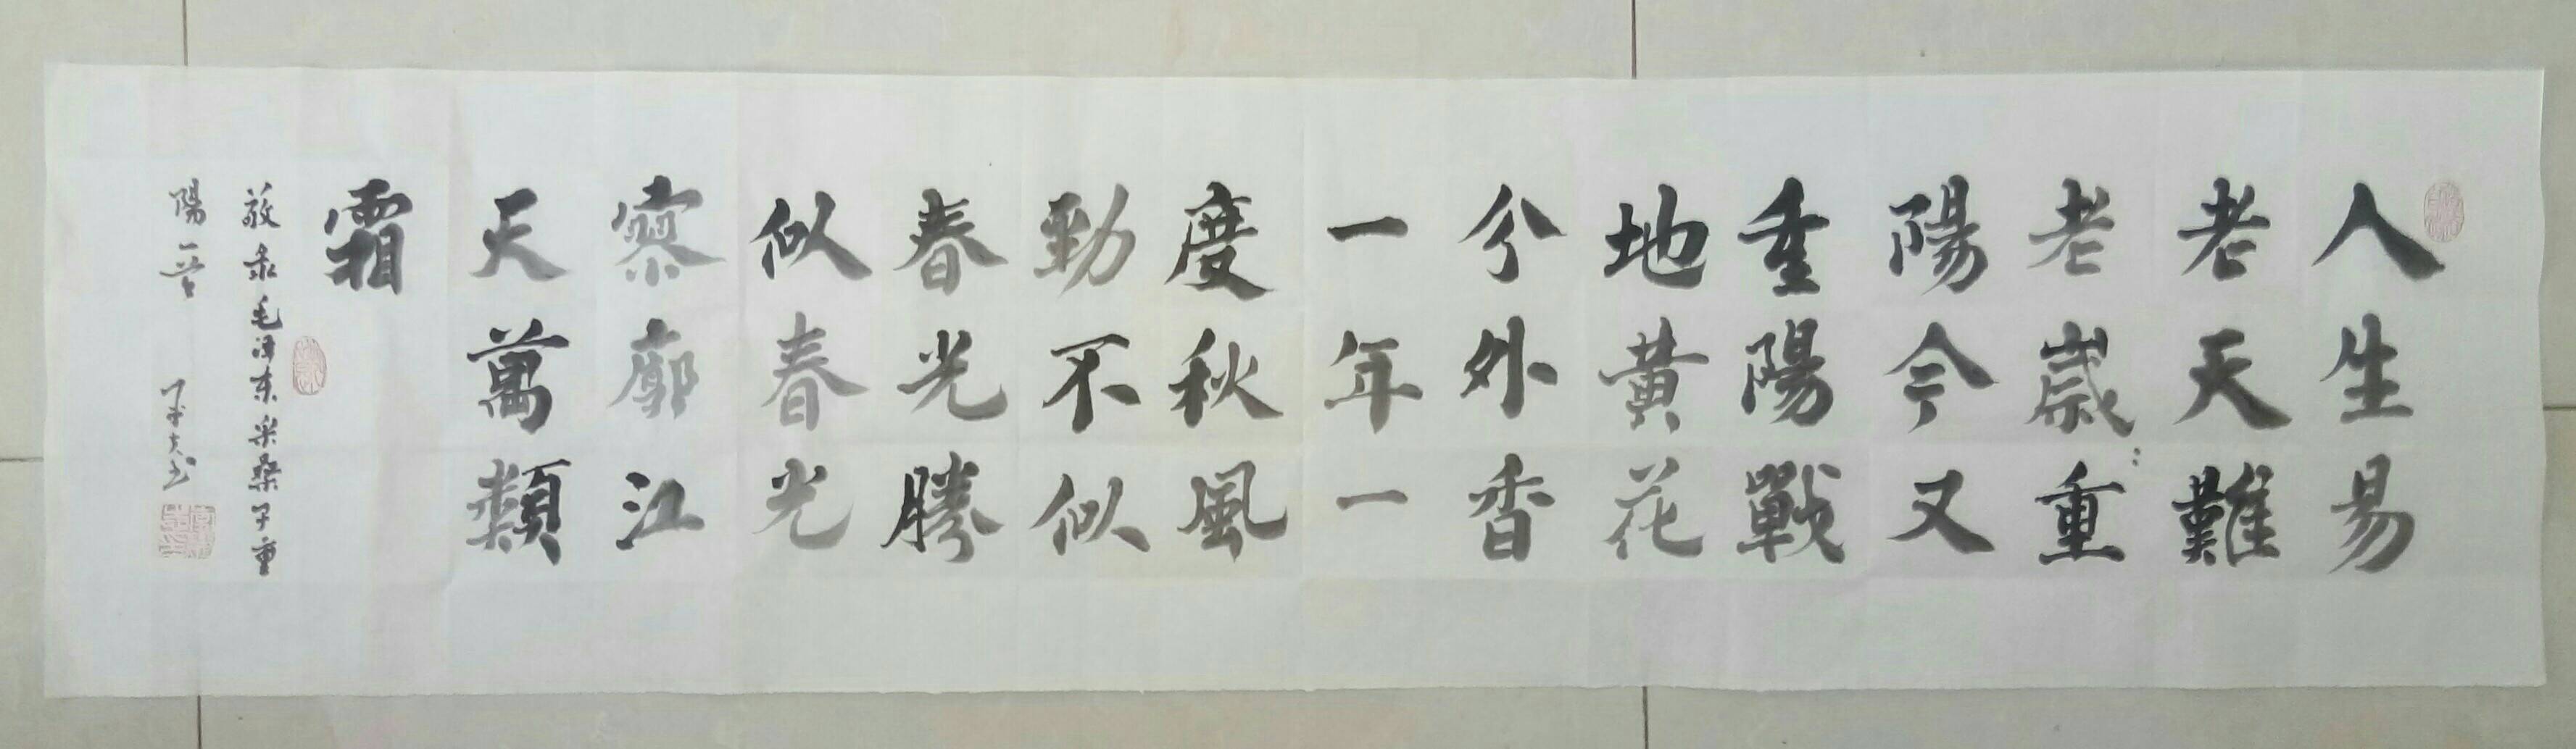 人生易
老天難
老歲〻重
陽今又
重陽戰
地黃花
分外香
一年一
度秋風
勁不似
春光勝
似春光
寥廓江
天萬類
霜
敬录毛泽东采桑子重
陽一首 书